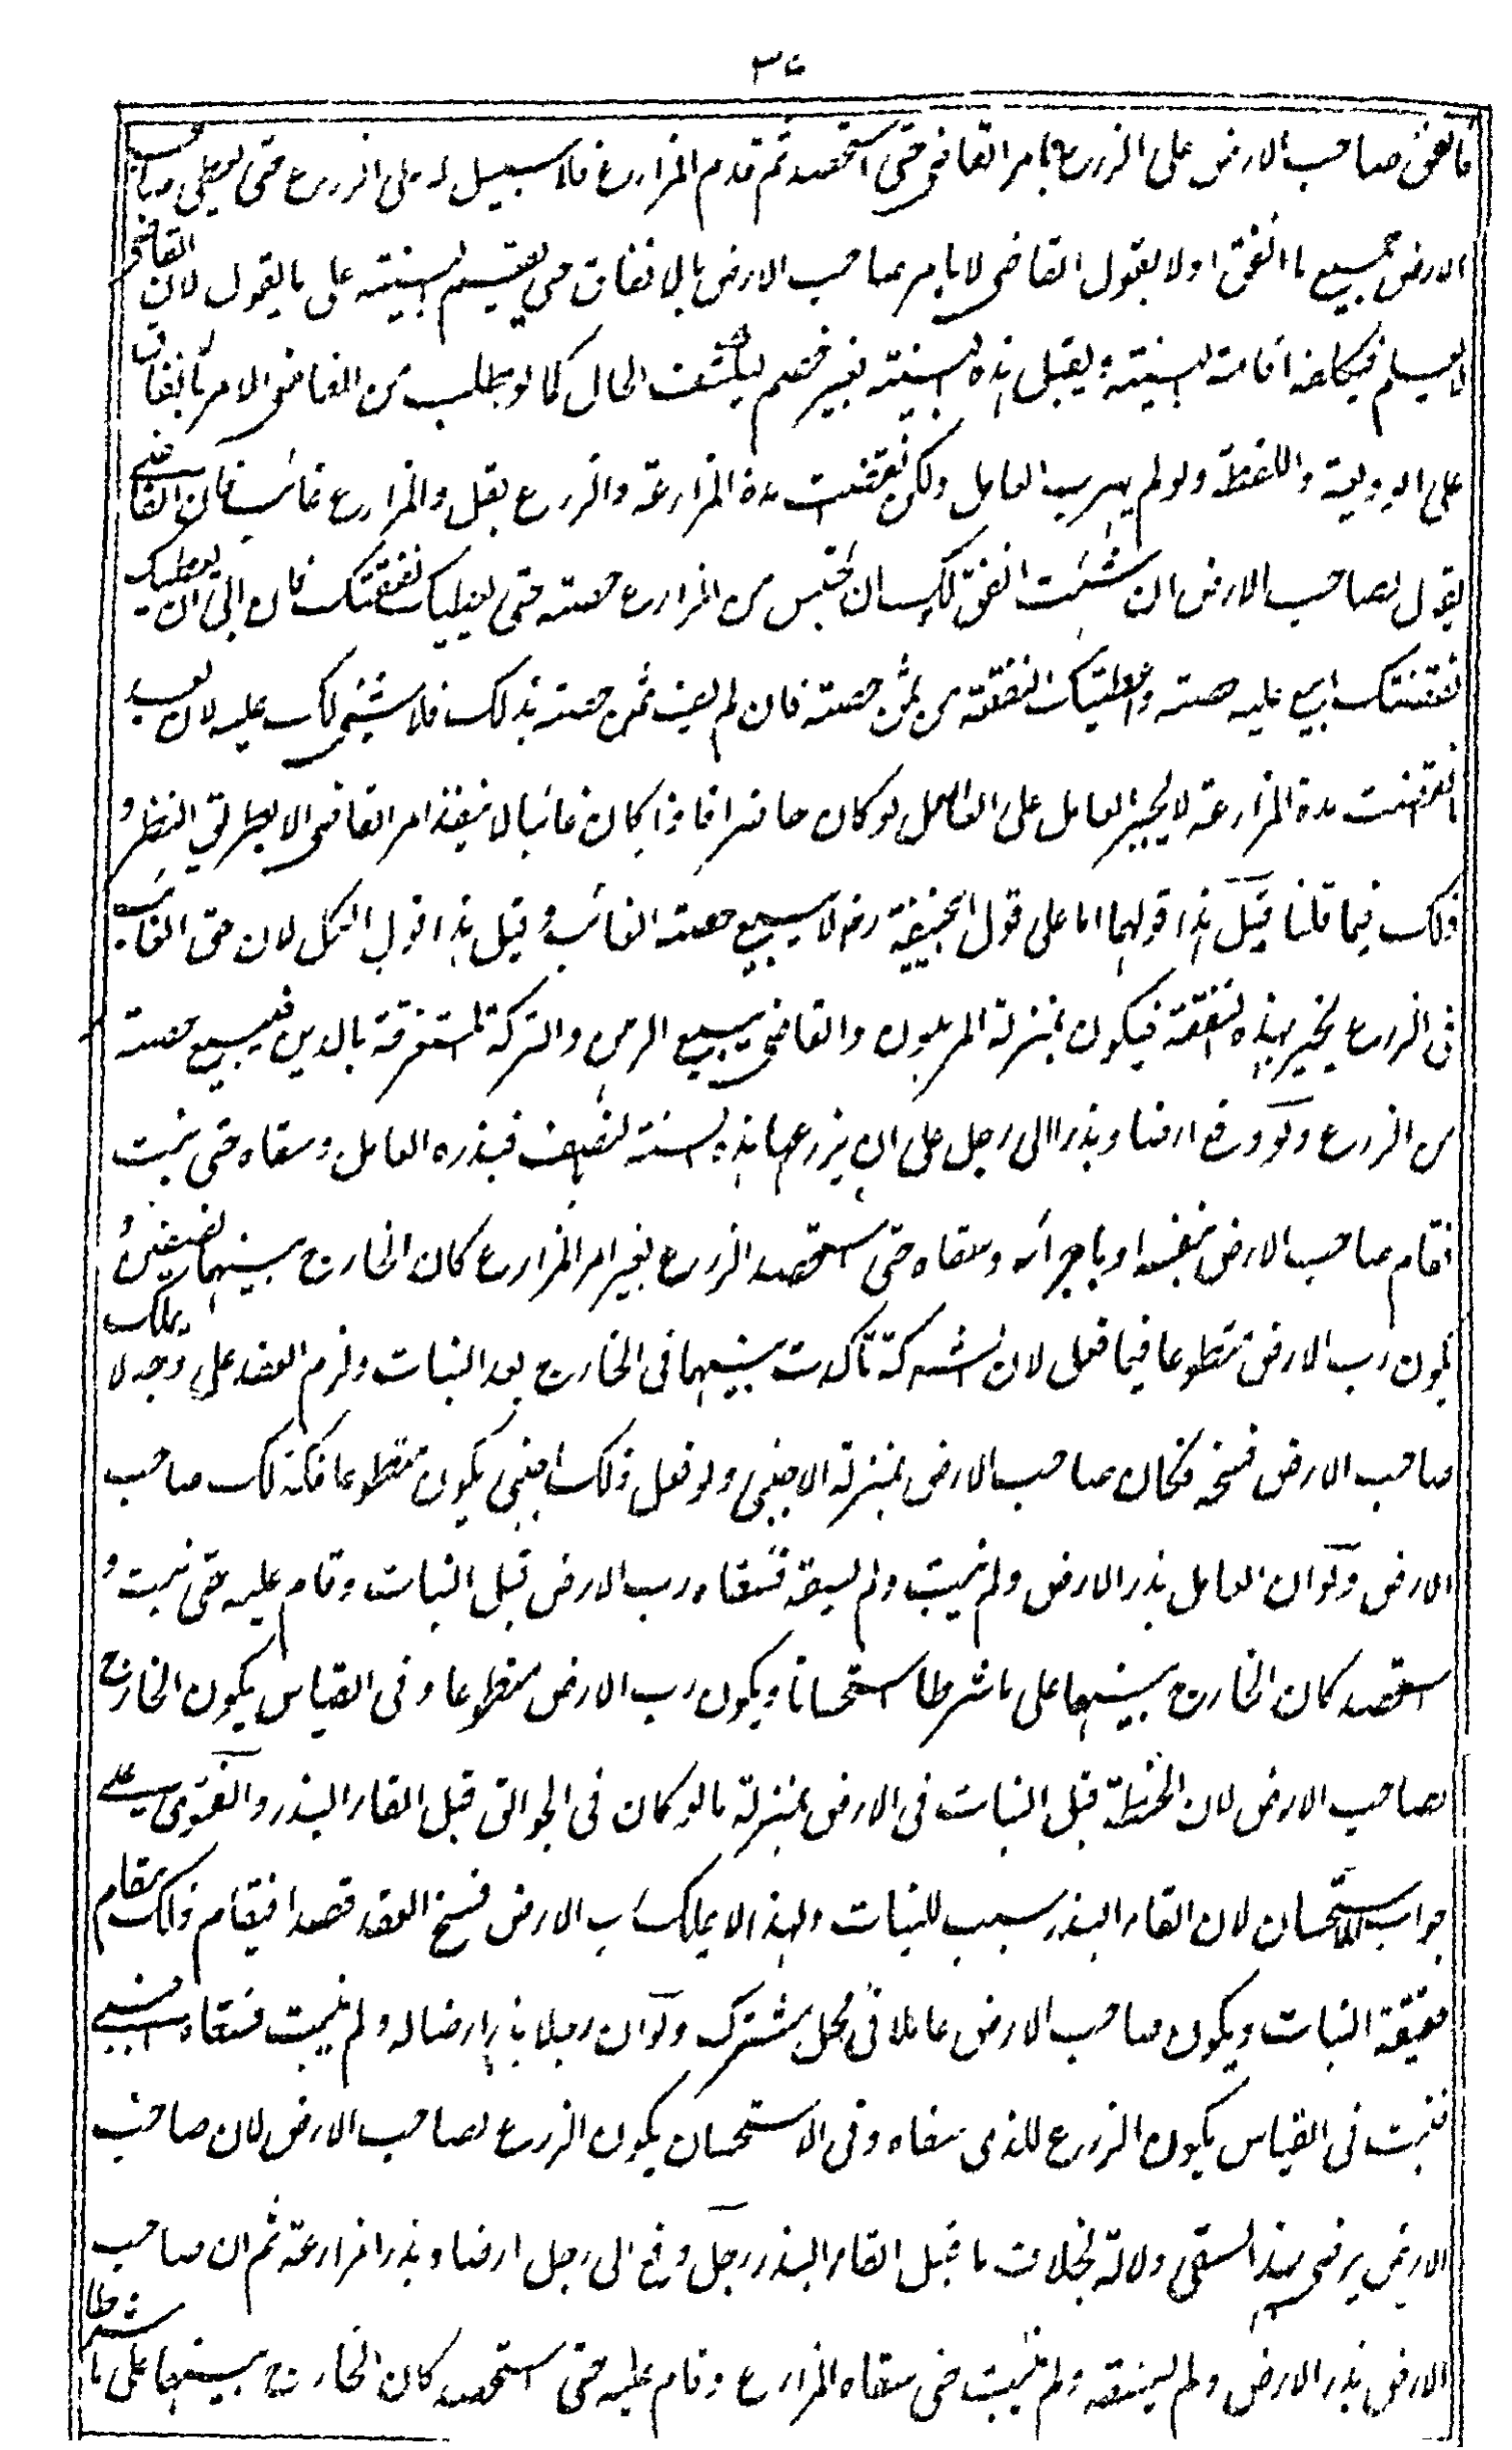 ٣٧
فانفق صاحب الارض على الزرع بامر القاضى حتى استحصد ثم قدم المزارع فلا سبيل له على الزرع حتى يعطى صاحب
الارض جميع ما انفق اولا يقول القاضى لا يامر صاحب الارض بالانفاق حتى يقيم البينة على ما يقول لان القاضى
لا يعلم فيكلفه اقامة البينة ويقبل هذه البينة بغير خصم ليكشف الحال كما لو يطلب من القاضى الامر بانفاق
على الوديعة واللقطة ولو لم يهرب العامل ولكن انقضت مدة المزارعة والزرع بقل والمزارع غائب فان القاضى
يقول لصاحب الارض ان شئت انفق لك ان تحبس من المزارع حصته حتى يعطيك نفقتك فان ابى ان يعطيك
نفقتك ابيع عليه حصته واعطيتك النفقة من ثمن حصته فان لم يف ثمن حصته بذلك فلا شيئ لك عليه لان بعد
ما انقضت مدة المزارعة لا يجبر العامل على العمل لو كان حاضرا فاذا كان غائبا لا ينفذ امر القاضى الا بطريق النظر و
ذلك فيما قلنا قيل هذا قولهما اما على قول ابيحنيفة رح لا يبيع حصة الغائب وقيل هذا قول الكل لان حق الغائب
فى الزرع يخير بهذه النفقة فيكون بمنزلة المرهون والقاضى يبيع الرهن والتركة المستغرقة بالدين فيبيع حصته
من الزرع ولو دفع ارضا وبذرا الى رجل على ان يزرعها هذه السنة بالنصف فبذره العامل وسقاه حتى نبت
فقام صاحب الارض بنفسه او باجرائه وسقاه حتى استحصد الزرع بغير امر المزارع كان الخارج بينهما نصفين و
يكون رب الارض متطوعا فيما فعل لان الشركة تاكدت بينهما فى الخارج بعد النبات ولزم العقد على وجه لا يملك
صاحب الارض فسخه فكان صاحب الارض بمنزلة الاجنبى ولو فعل ذلك اجنبى يكون متطوعا فكذلك صاحب
الارض ولو ان العامل بذر الارض ولم ينبت ولم يسقه فسقاه رب الارض قبل النبات وقام عليه حتى نبت و
استحصد كان الخارج بينهما على ما شرطا استحسانا ويكون رب الارض متطوعا وفى القياس يكون الخارج
لصاحب الارض لان الحنطة قبل النبات فى الارض بمنزلة ما لو كان فى الجوالق قبل القاء البذر والفتوى على
جواب الاستحسان لان القاء البذر سبب للنبات ولهذا لا يملك رب الارض فسخ العقد قصدا فيقام ذلك مقام
حقيقة النبات ويكون صاحب الارض عاملا فى محل مشترك ولو ان رجلا بذر ارضا له ولم ينبت فسقاه اجنبى
فنبت فى القياس يكون الزرع للذى سقاه وفى الاستحسان يكون الزرع لصاحب الارض لان صاحب
الارض يرضى بهذا السقى دلالة بخلاف ما قبل القاء البذر رجل دفع الى رجل ارضا وبذرا مزارعة ثم ان صاحب
الارض بذر الارض ولم يسقه ولم ينبت حتى سقاه المزارع وقام عليه حتى استحصد كان الخارج بينهما على ما شرطا